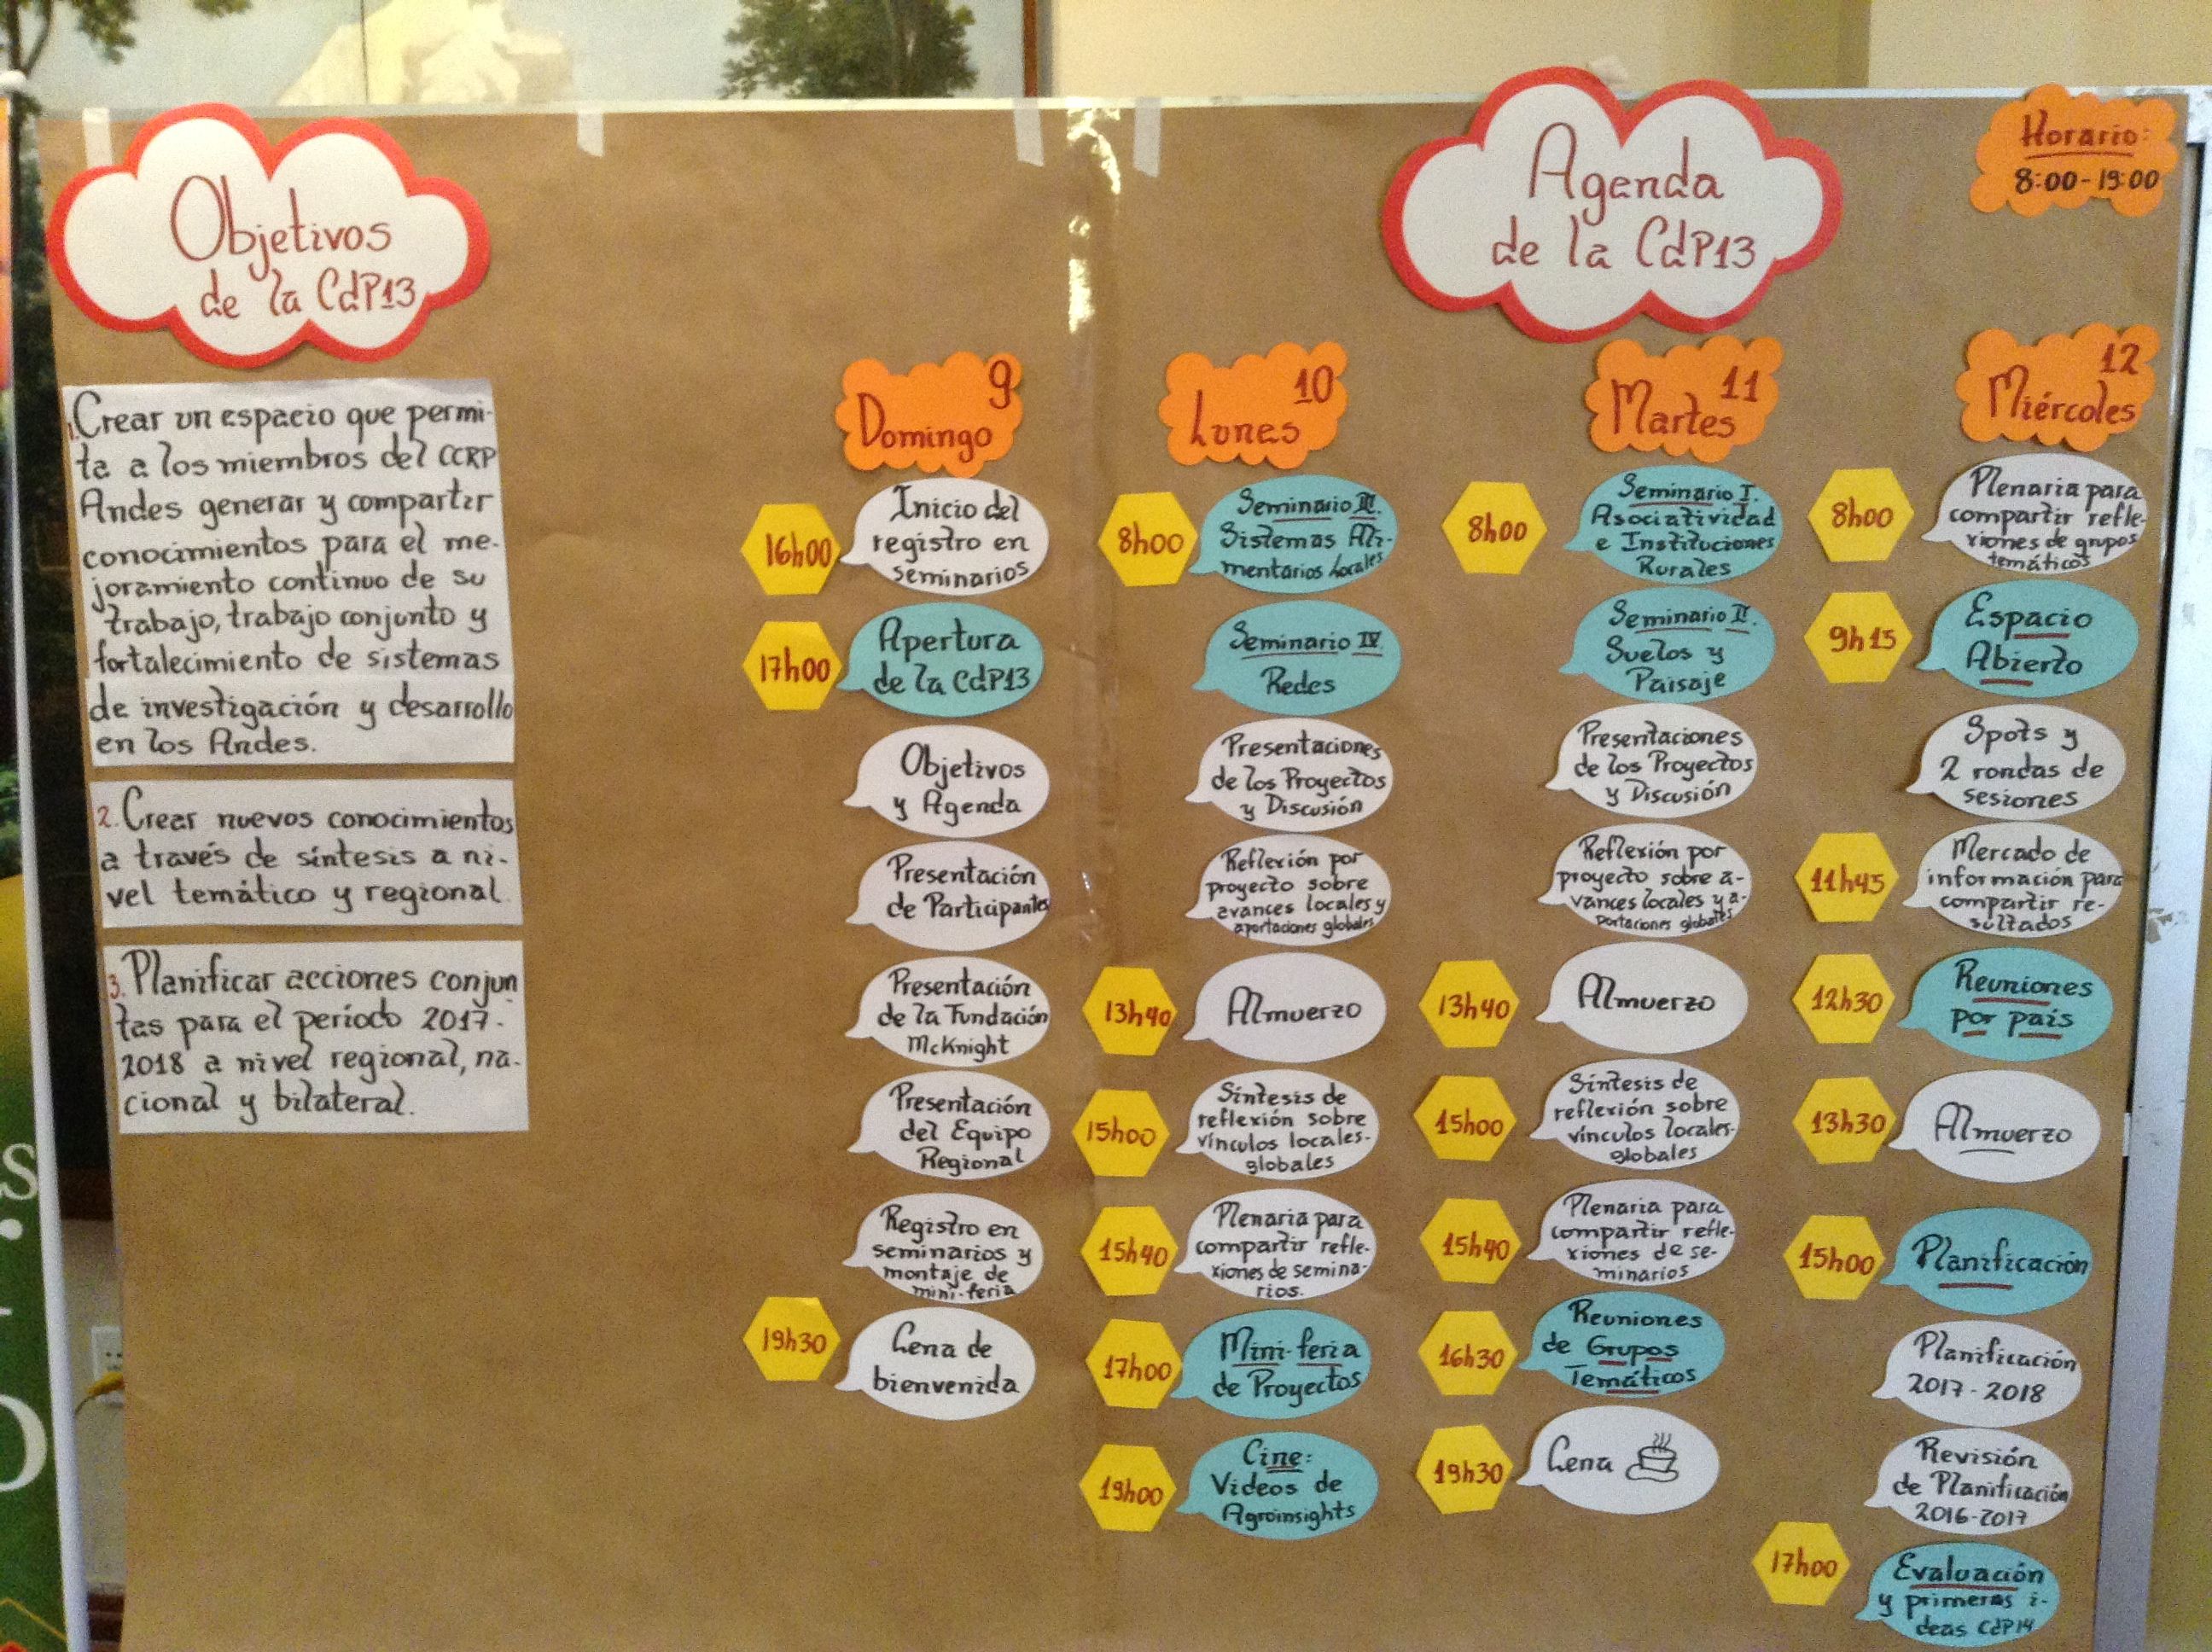 Objetivos
de la CdP13
1. Crear un espacio que permi-
ta a los miembros del CCRP
Andes generar y compartir
conocimientos para el me-
joramiento continuo de su
trabajo, trabajo conjunto y
fortalecimiento de sistemas
de investigación y desarrollo
en los Andes.
2. Crear nuevos conocimientos
a través de síntesis a ni-
vel temático y regional
3. Planificar acciones conjun
tas para el período 2017-
2018 a nivel regional, na-
cional y bilateral.
Agenda
de la CdP13
Horario:
8:00-19:00
9
Domingo
16h00
Inicio del
registro en
seminarios
17h00
Apertura
de la CdP13
Objetivos
y Agenda
Presentación
de Participantes
Presentación
de la Fundación
McKnight
Presentación
del Equipo
Regional
Registro en
seminarios y
montaje de
mini-feria
19h30
Cena de
bienvenida
10
Lunes
8h00
Seminario III.
Sistemas Ali-
mentarios Locales
Seminario IV
Redes
Presentaciones
de los Proyectos
y Discusión
Reflexión por
proyecto sobre
avances locales y
aportaciones globales
13h40
Almuerzo
15h00
Síntesis de
reflexión sobre
vínculos locales-
globales
15h40
Plenaria para
compartir refle-
xiones de semina-
rios.
17h00
Mini-feria
de Proyectos
19h00
Cine:
Videos de
Agroinsights
11
Martes
8h00
Seminario I.
Asociatividad
e Instituciones
Rurales
Seminario II.
Suelos y
Paisaje
Presentaciones
de los Proyectos
y Discusión
Reflexión por
proyecto sobre a-
vances locales y a-
portaciones globales
13h40
Almuerzo
15h00
Síntesis de
reflexión sobre
vínculos locales-
globales
15h40
Plenaria para
compartir refle-
xiones de se-
minarios
16h30
Reuniones
de Grupos
Temáticos
19h30
Cena
12
Miércoles
8h00
Plenaria para
compartir refle-
xiones de grupos
temáticos
9h15
Espacio
Abierto
Spots y
2 rondas de
sesiones
11h45
Mercado de
información para
compartir re-
sultados
12h30
Reuniones
por país
13h30
Almuerzo
15h00
Planificación
Planificación
2017-2018
Revisión
de Planificación
2016-2017
17h00
Evaluación
y primeras i-
deas CdP14